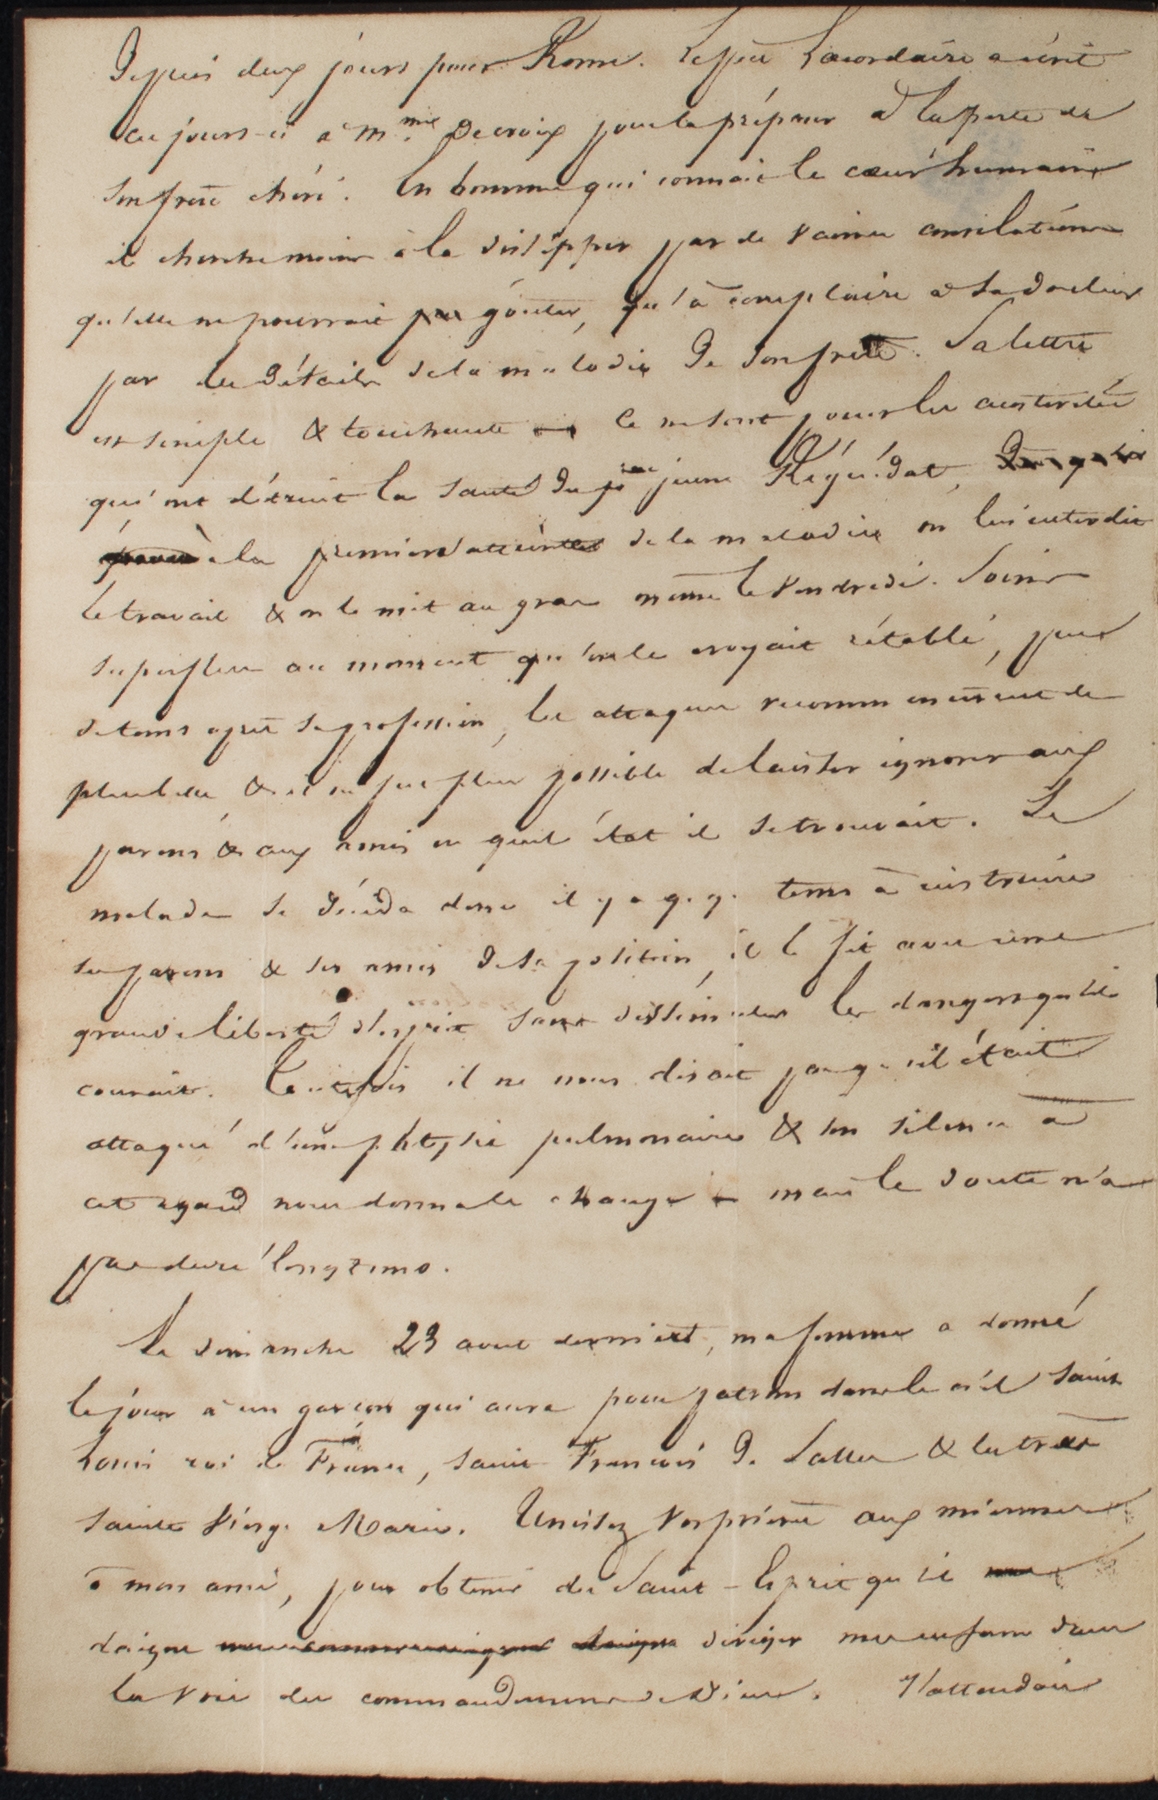 Depuis deux jours pour Rome. Le père Lacordaire a écrit
ces jours-ci à Mme Decroix pour la préparer à la perte de
son frère chéri. En homme qui connait le cœur humain
il cherche moins à la dissipper par de vaines consolations
qu'elle ne pourrait pas goûter, qu'à complaire à sa douleur
par les détails de la maladie de son frère. Sa lettre
est simple & touchante — ce ne sont pas les austérités
qui ont détruit la santé du jeune Réquédat,
à la première atteinte de la maladie on lui interdit
le travail & on le mit au gras même le Vendredi. Soins
superflus au moment qu'on le croyait rétabli, peu
de tems après sa profession, les attaques recommencèrent de
plus belle & il ne fut plus possible de laisser ignorer aux
parens & aux amis en quel état il se trouvait. Le
malade se décida donc il y a q. q. tems à instruire
ses parens & ses amis de sa position, il le fit avec une
grande liberté d'esprit sans dissimuler les dangers qu'il
courait. Toutefois il ne nous disait pas qu'il était
attaqué d'une phtysie pulmonaire & son silence à
cet égard nous donna le change — mais le doute n'a
pas duré longtems.
Le dimanche 23 aout dernier, ma femme a donné
le jour à un garçon qui aura pour patrons dans le ciel Saint
Louis roi de France, Saint François de Salles & la très
Sainte Vierge Marie. Unissez vos prières aux miennes
ô mon ami, pour obtenir du Saint-Esprit qu'il
daigne diriger mes enfans dans
la voie des commandemens de Dieu. J'attendais